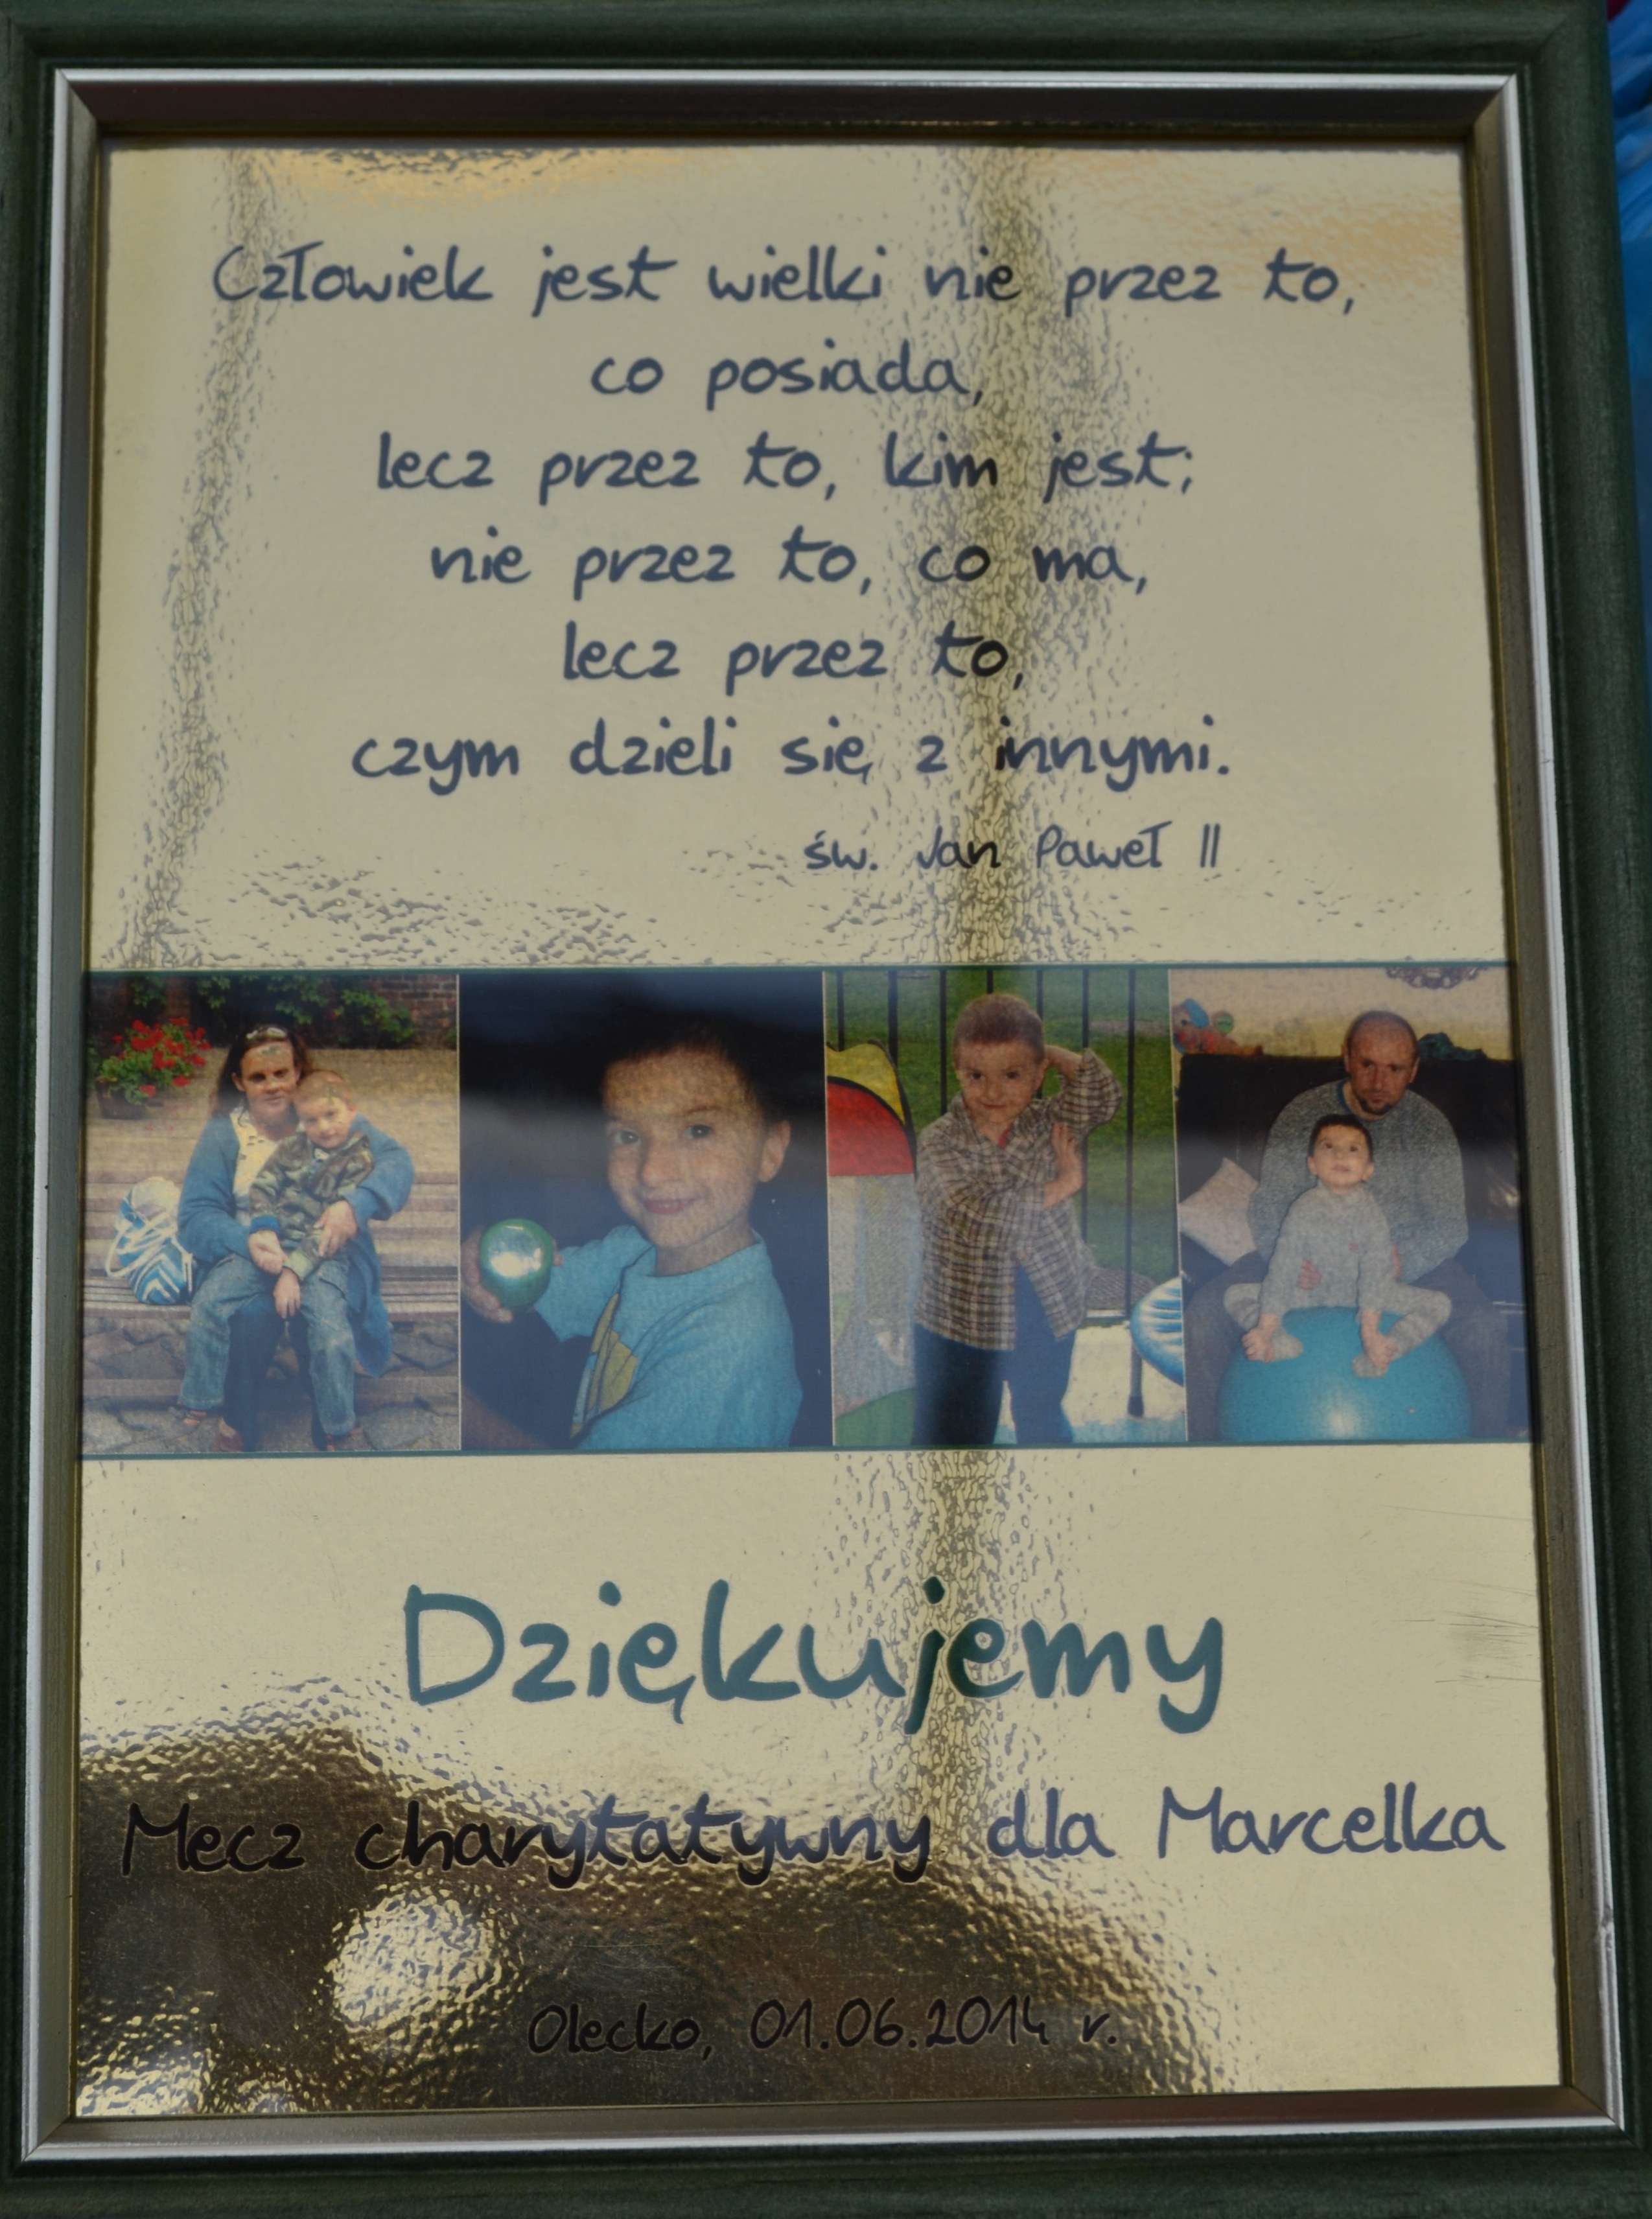 Człowiek jest wielki nie przez to,
co posiada,
lecz przez to, kim jest;
nie przez to, co ma,
lecz przez to,
czym dzieli się z innymi.
św. Jan Paweł II
Dziękujemy
Mecz charytatywny dla Marcelka
Olecko, 01.06.2014 r.